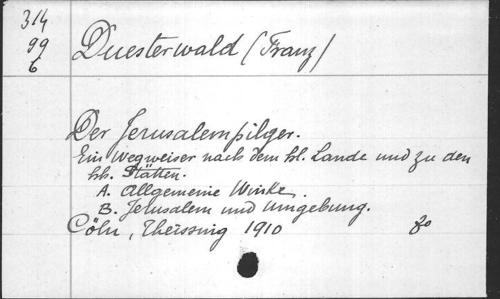 314
99
6
Duesterwald (Franz)
Der Jerusalempilger.
Ein Wegweiser nach dem hl. Lande und zu den
hh. Stätten.
A. Allgemeine Winke.
B. Jerusalem und Umgebung.
Cöln, Theissing 1910